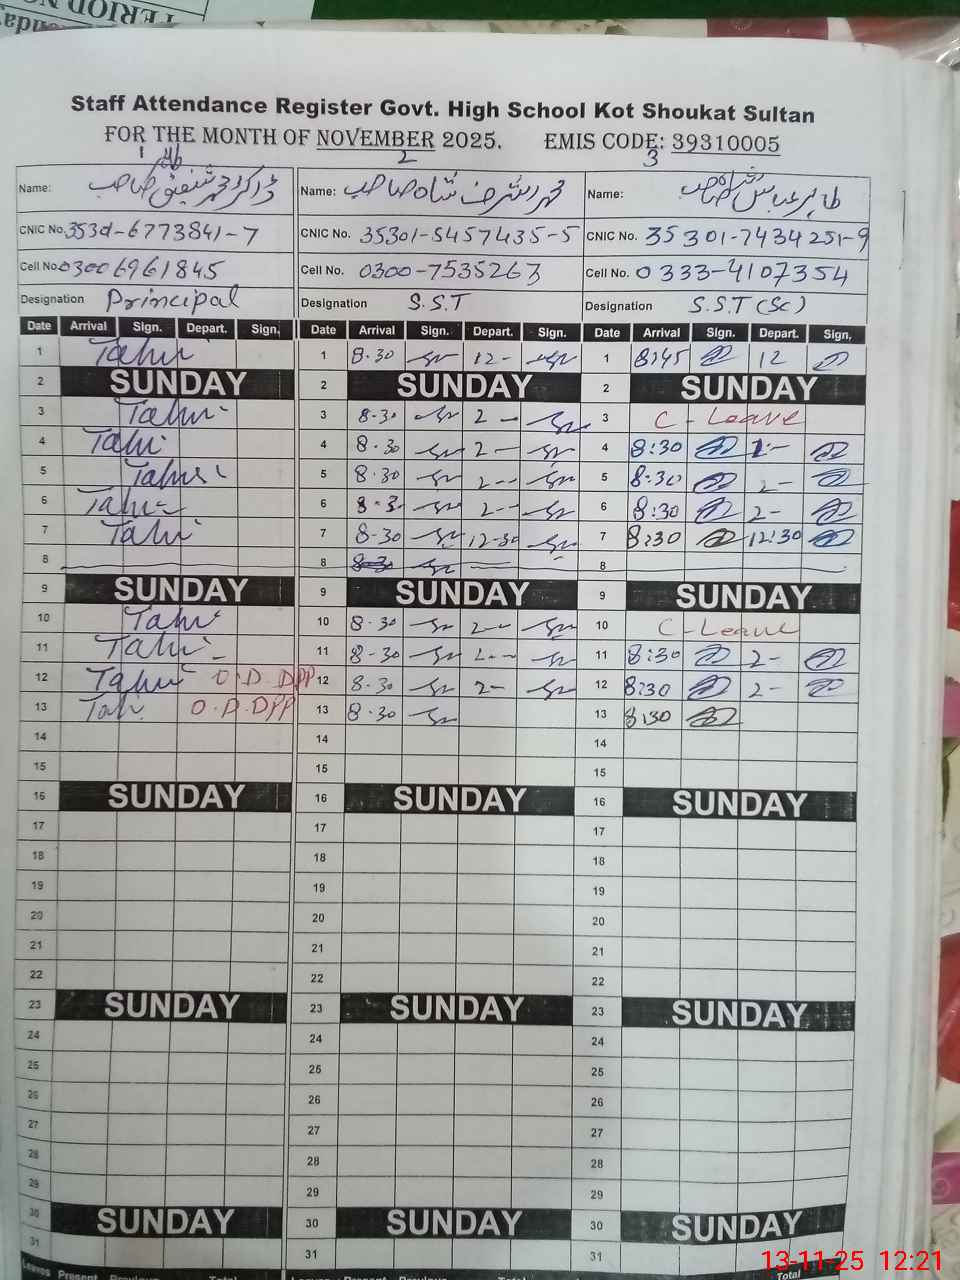 PERIOD NO
Staff Attendance Register Govt. High School Kot Shoukat Sultan
FOR THE MONTH OF NOVEMBER 2025. EMIS CODE: 39310005
1 2 3
Name: ڈاکٹر محمد شفیق صاحب Name: محمد اشرف شاہ صاحب Name: طاہر عباس شاہ صاحب
CNIC No. CNIC No. 35301-5457435-5 CNIC No. 35301-7434251-9
Cell No. 03006961845 Cell No. 0300-7535263 Cell No. 0333-4107354
Designation Principal Designation S.S.T Designation S.S.T (Sc)
Date Arrival Sign. Depart. Sign. Date Arrival Sign. Depart. Sign. Date Arrival Sign. Depart. Sign.
1 1 8-30 12- 1 8:45 12
2 SUNDAY 2 SUNDAY 2 SUNDAY
3 3 8-30 2- 3 C-Leave
4 4 8-30 2- 4 8:30
5 5 8-30 2- 5 8:30 2-
6 6 2- 6 8:30 2-
7 7 8-30 12-30 7 8:30 12:30
8 8 8-30 8
9 SUNDAY 9 SUNDAY 9 SUNDAY
10 10 8-30 2- 10 C-Leave
11 11 8-30 2- 11 8:30 2-
12 O.D.DPP 12 8-30 2- 12 8:30 2-
13 O.D.DPP 13 8-30 13 8:30
14 14 14
15 15 15
16 SUNDAY 16 SUNDAY 16 SUNDAY
17 17 17
18 18 18
19 19 19
20 20 20
21 21 21
22 22 22
23 SUNDAY 23 SUNDAY 23 SUNDAY
24 24 24
25 25 25
26 26 26
27 27 27
28 28 28
29 29 29
30 SUNDAY 30 SUNDAY 30 SUNDAY
31 31 31
Leaves Present Previous Total Leaves Present Previous Total Total
13-11-25 12:21